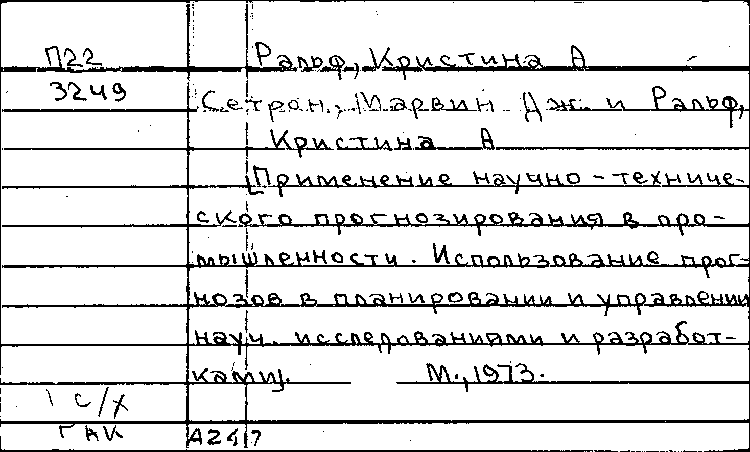 П22 Ральф, Кристина А
3249
Сетрон, Марвин Дж. и Ральф,
Кристина А
[Применение научно-техниче-
ского прогнозирования в про-
мышленности. Использование прог-
нозов в планировании и управлении
науч. исследованиями и разработ-
ками]. М., 1973.
1 с/х
ГАК А247